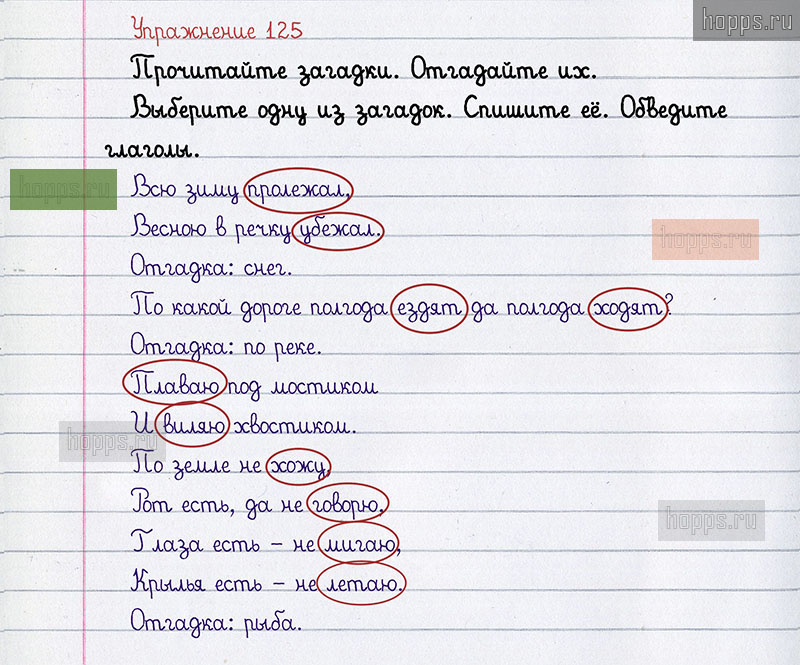 hopps.ru
Упражнение 125
Прочитайте загадки. Отгадайте их.
Выберите одну из загадок. Спишите её. Обведите
глаголы.
hopps.ru
Всю зиму пролежал,
Весною в речку убежал.
hopps.ru
Отгадка: снег.
По какой дороге полгода ездят да полгода ходят?
Отгадка: по реке.
Плаваю под мостиком
И виляю хвостиком.
hopps.ru
По земле не хожу,
Рот есть, да не говорю,
hopps.ru
Глаза есть – не мигаю,
Крылья есть – не летаю.
Отгадка: рыба.